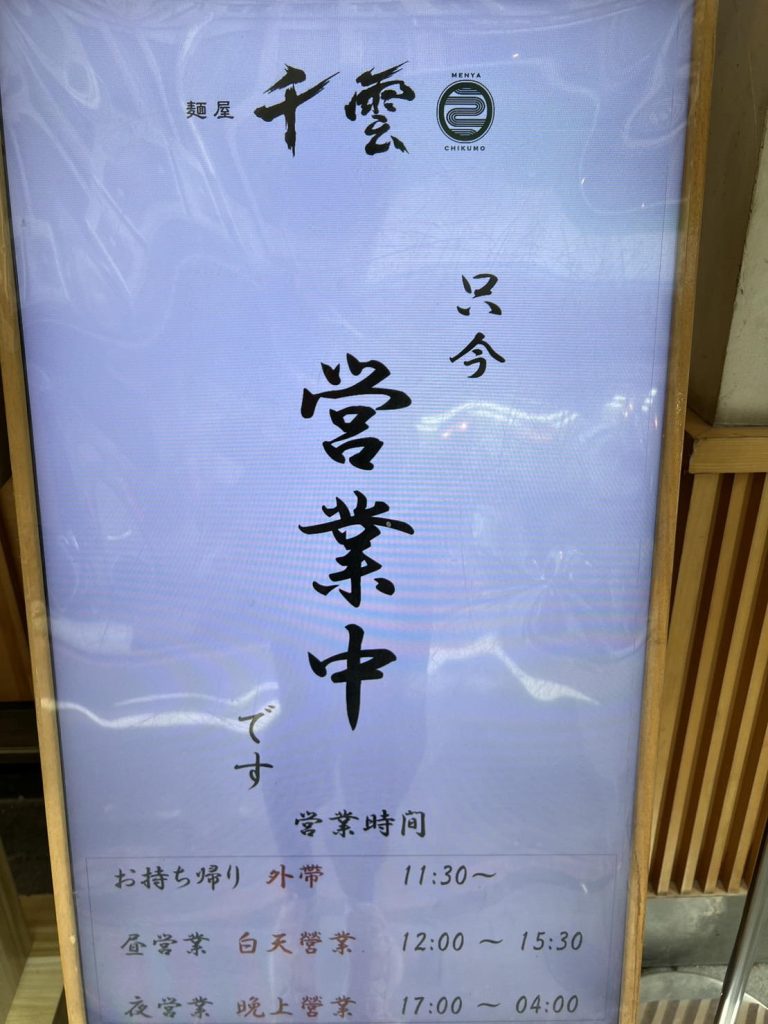 麺屋 千雲
MENYA
CHIKUMO
只今
営業中
です
営業時間
お持ち帰り 外帶 11:30～
昼営業 白天營業 12:00 ～ 15:30
夜営業 晚上營業 17:00 ～ 04:00